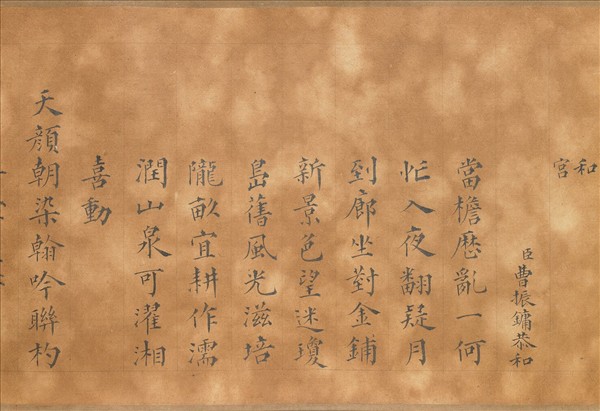 和
宮
臣曹振鏞恭和
當檐歷亂一何
忙入夜翻疑月
到廊坐對金鋪
新景色望迷瓊
島舊風光滋培
隴畝宜耕作濡
潤山泉可濯湘
喜動
天顏朝染翰吟聯杓